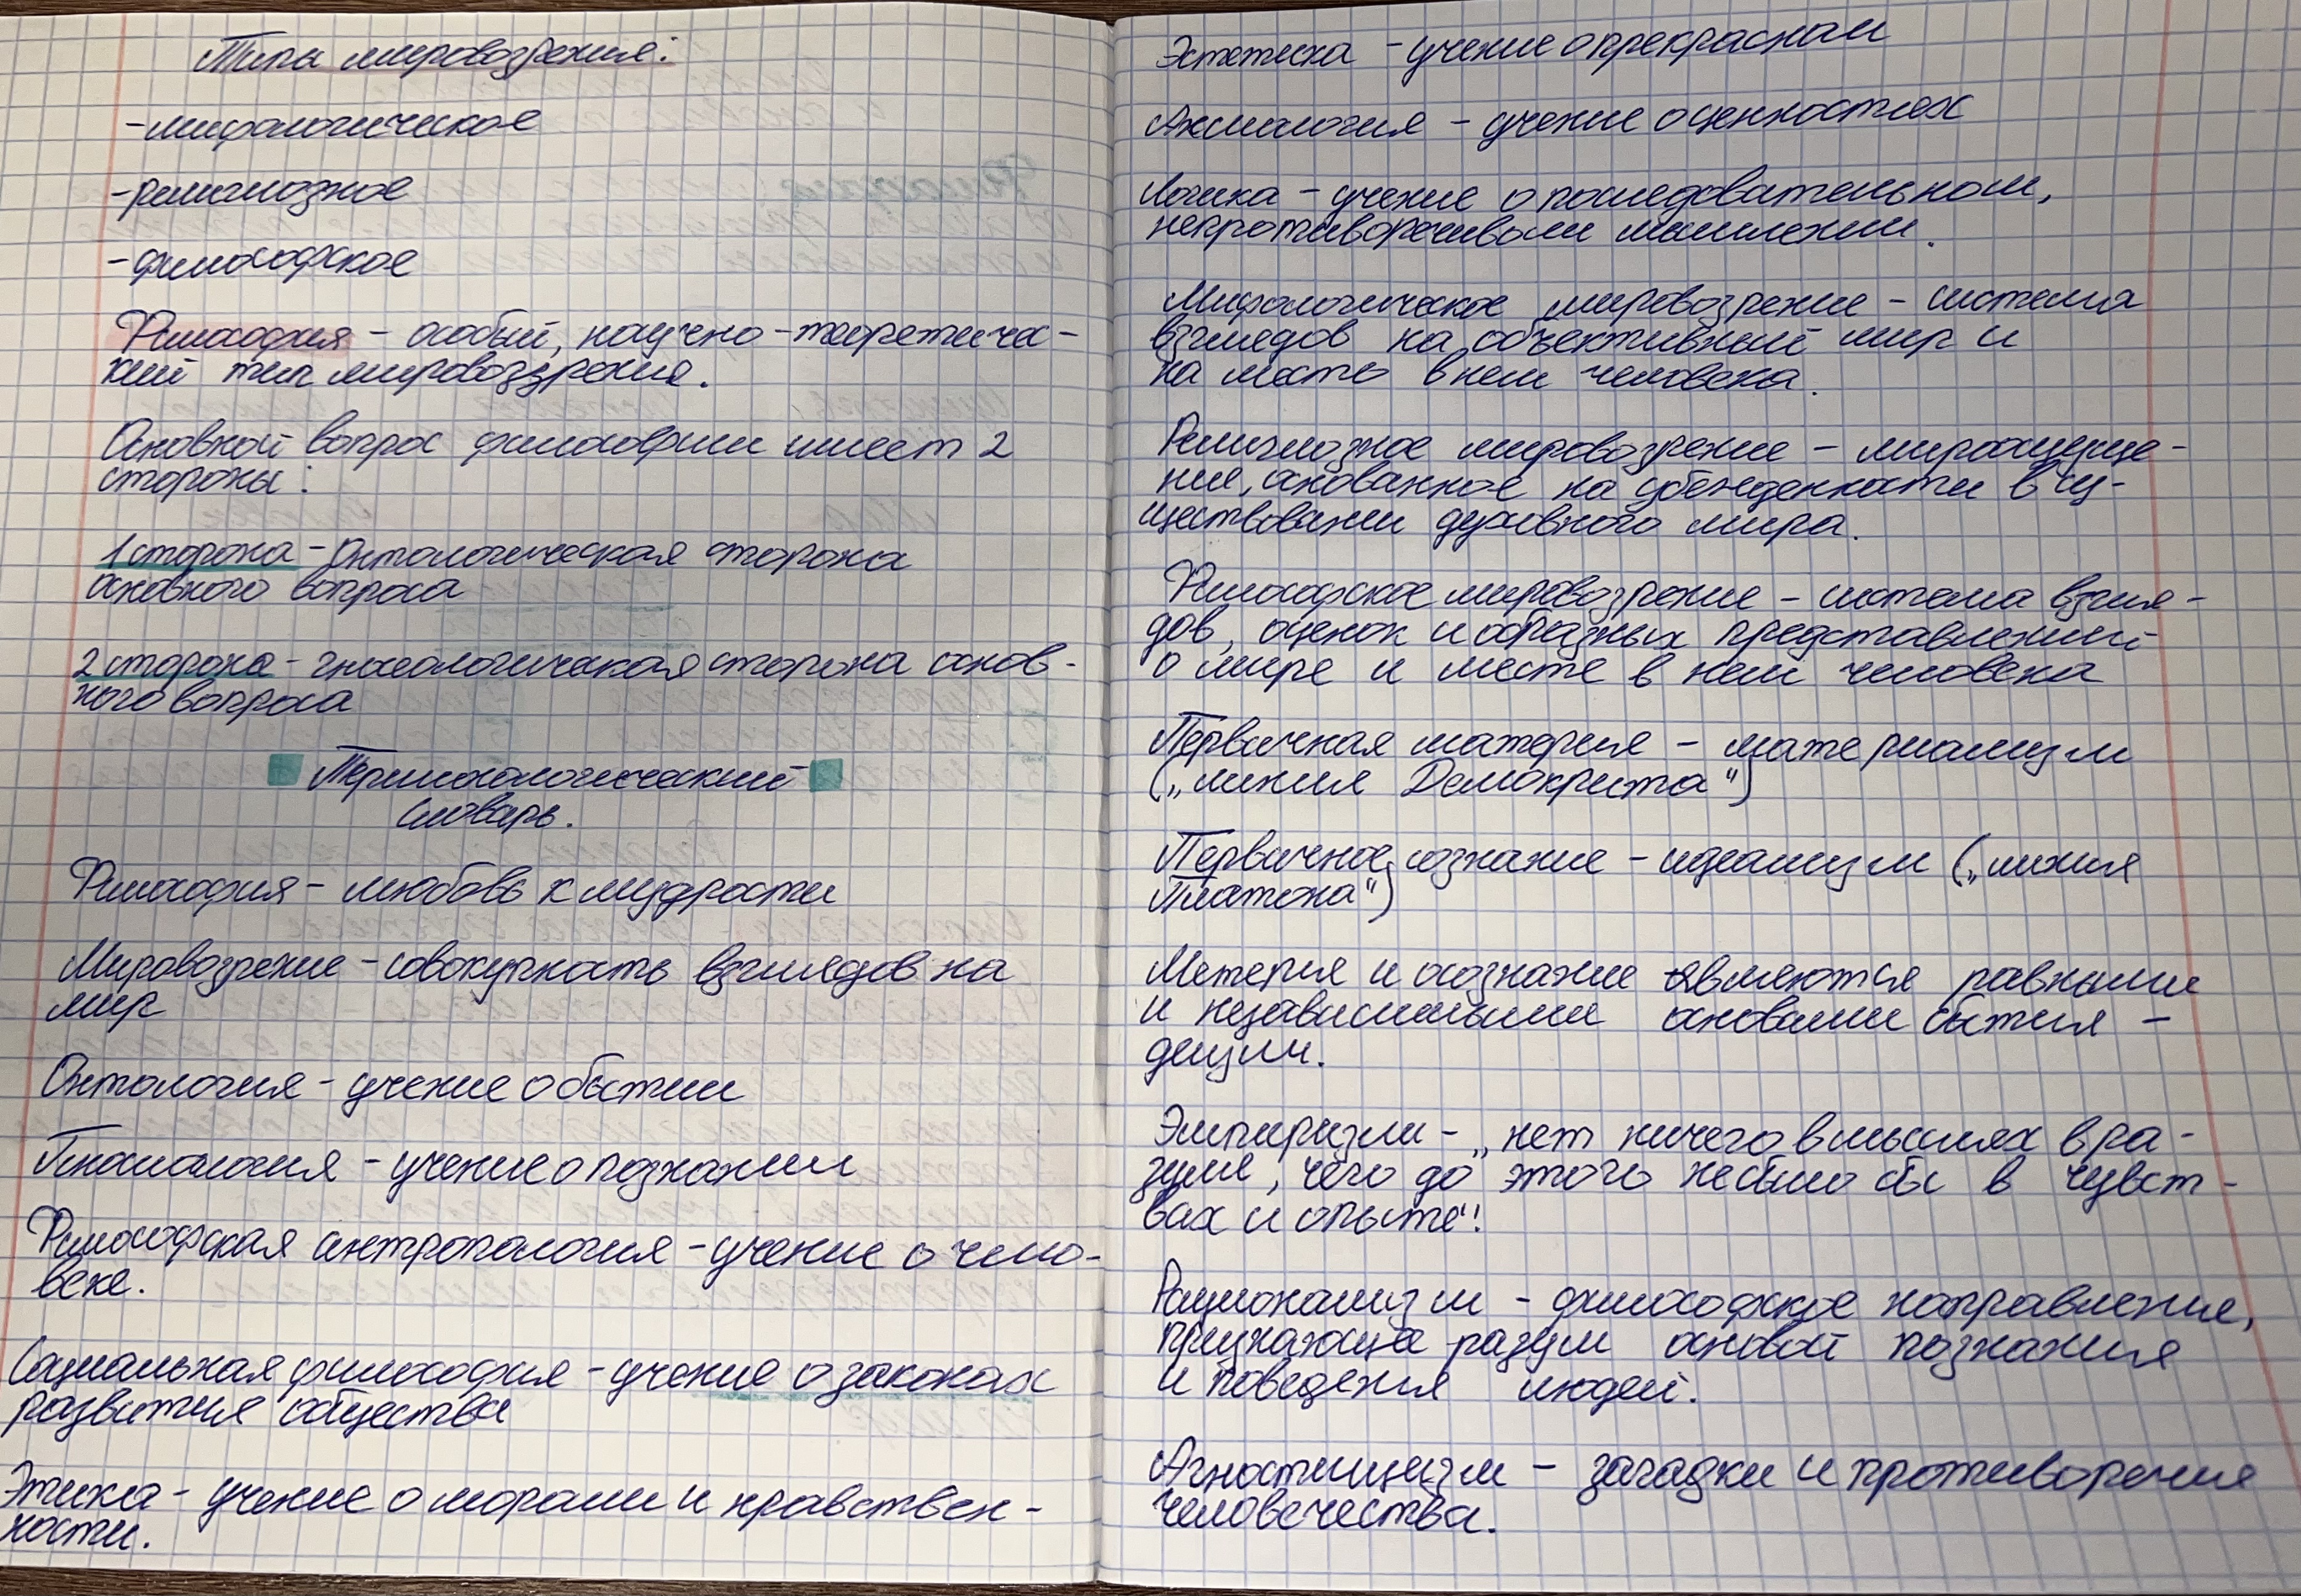 Типы мировозрения:
-мифологическое
-религиозное
-философское
Философия - особый, научно-теоретичес-
кий тип мировоззрения.
Основной вопрос философии имеет 2
стороны:
1 сторона - Онтологическая сторона
основного вопроса
2 сторона - гносеологическая сторона основ-
ного вопроса
Терминологический
словарь.
Философия - любовь к мудрости
Мировозрение - совокупность взглядов на
мир
Онтология - учение о бытии
Гносиология - учение о познании
Философская антропология - учение о чело-
веке.
Социальная философия - учение о законах
развития общества
Этика - учение о морали и нравствен-
ности.
Эстетика - учение о прекрасном
Аксиология - учение о ценностях
Логика - учение о последовательном,
непротиворечивом мышлении.
Мифологическое мировозрение - система
взглядов на объективный мир и
на место в нем человека.
Религиозное мировозрение - мироощуще-
ние, основанное на убежденности в су-
ществовании духовного мира.
Философское мировозрение - система взгля-
дов, оценок и образных представлений
о мире и месте в нем человека
Первичная материя - материализм
(„линия Демокрита")
Первичное сознание - идеализм („линия
Платона")
Метерия и сознание являются равными
и независимыми основами бытия -
деизм.
Эмпиризм - „нет ничего в мыслях в ра-
зуме, чего до этого не было бы в чувст-
вах и опыте".
Рационализм - философское направление,
признающие разум основой познания
и поведения людей.
Агностицизм - загадки и противоречия
человечества.